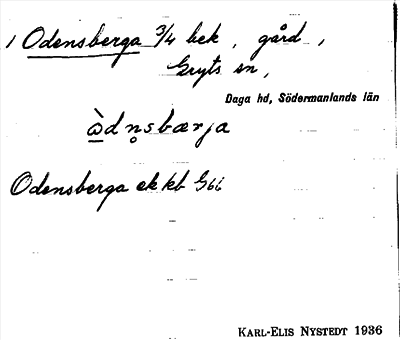 1 Odensberga 3/4 bek, gård,
Gryts sn,
Daga hd, Södermanlands län
ὼdn̥sbærja
Odensberga ek kb G66
KARL-ELIS NYSTEDT 1936